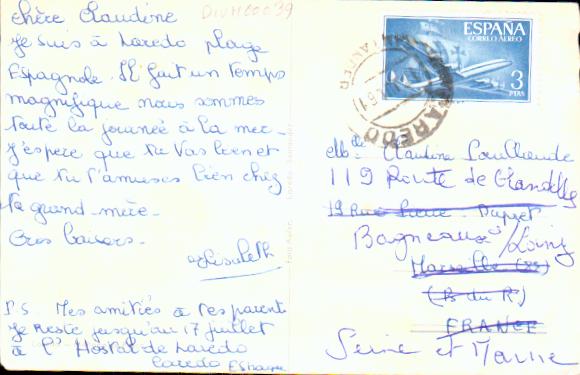 DIVH00039
chère Claudine
Je suis à Laredo plage
Espagnole. Il fait un temps
magnifique nous sommes
toute la journée à la mer
J'espère que tu vas bien et
que tu t'amuses bien chez
ta grand-mère.
Gros baisers.
Elisabeth
P.S. Mes amitiés à tes parents
Je reste jusqu'au 17 juillet
à l'Hostal de Laredo
Laredo Espagne
ESPAÑA
CORREO AEREO
3
PTAS
LAREDO
Claudine
119 Route de
19 Rue
Bagneaux s/ Loing
Marseille
(B du R)
FRANCE
Seine et Marne